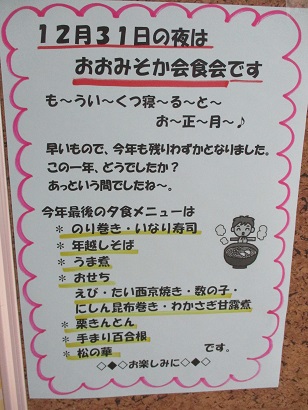 12月31日の夜は
おおみそか会食会です
も～うい～くつ寝～る～と～
お～正～月～♪
早いもので、今年も残りわずかとなりました。
この一年、どうでしたか？
あっという間でしたね～。
今年最後の夕食メニューは
＊ のり巻き・いなり寿司
＊ 年越しそば
＊ うま煮
＊ おせち
えび・たい西京焼き・数の子・
にしん昆布巻き・わかさぎ甘露煮
＊ 栗きんとん
＊ 手まり百合根
＊ 松の華　です。
◇◆◇お楽しみに◇◆◇